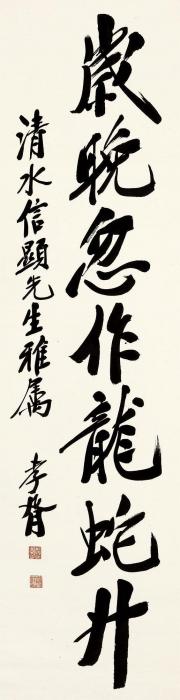 歲晚忽作龍蛇升
清水信顯先生雅属
孝胥